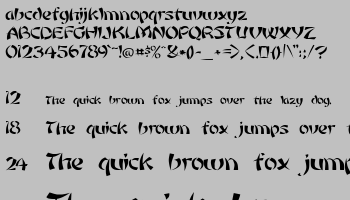 abcdefghijklmnopqrstuvwxyz
ABCDEFGHIJKLMNOPQRSTUVWXYZ
0123456789~!@#$%^&*()-_+=>,<.[]{}/|\";:/?
12 The quick brown fox jumps over the lazy dog.
18 The quick brown fox jumps over the
24 The quick brown fox jump